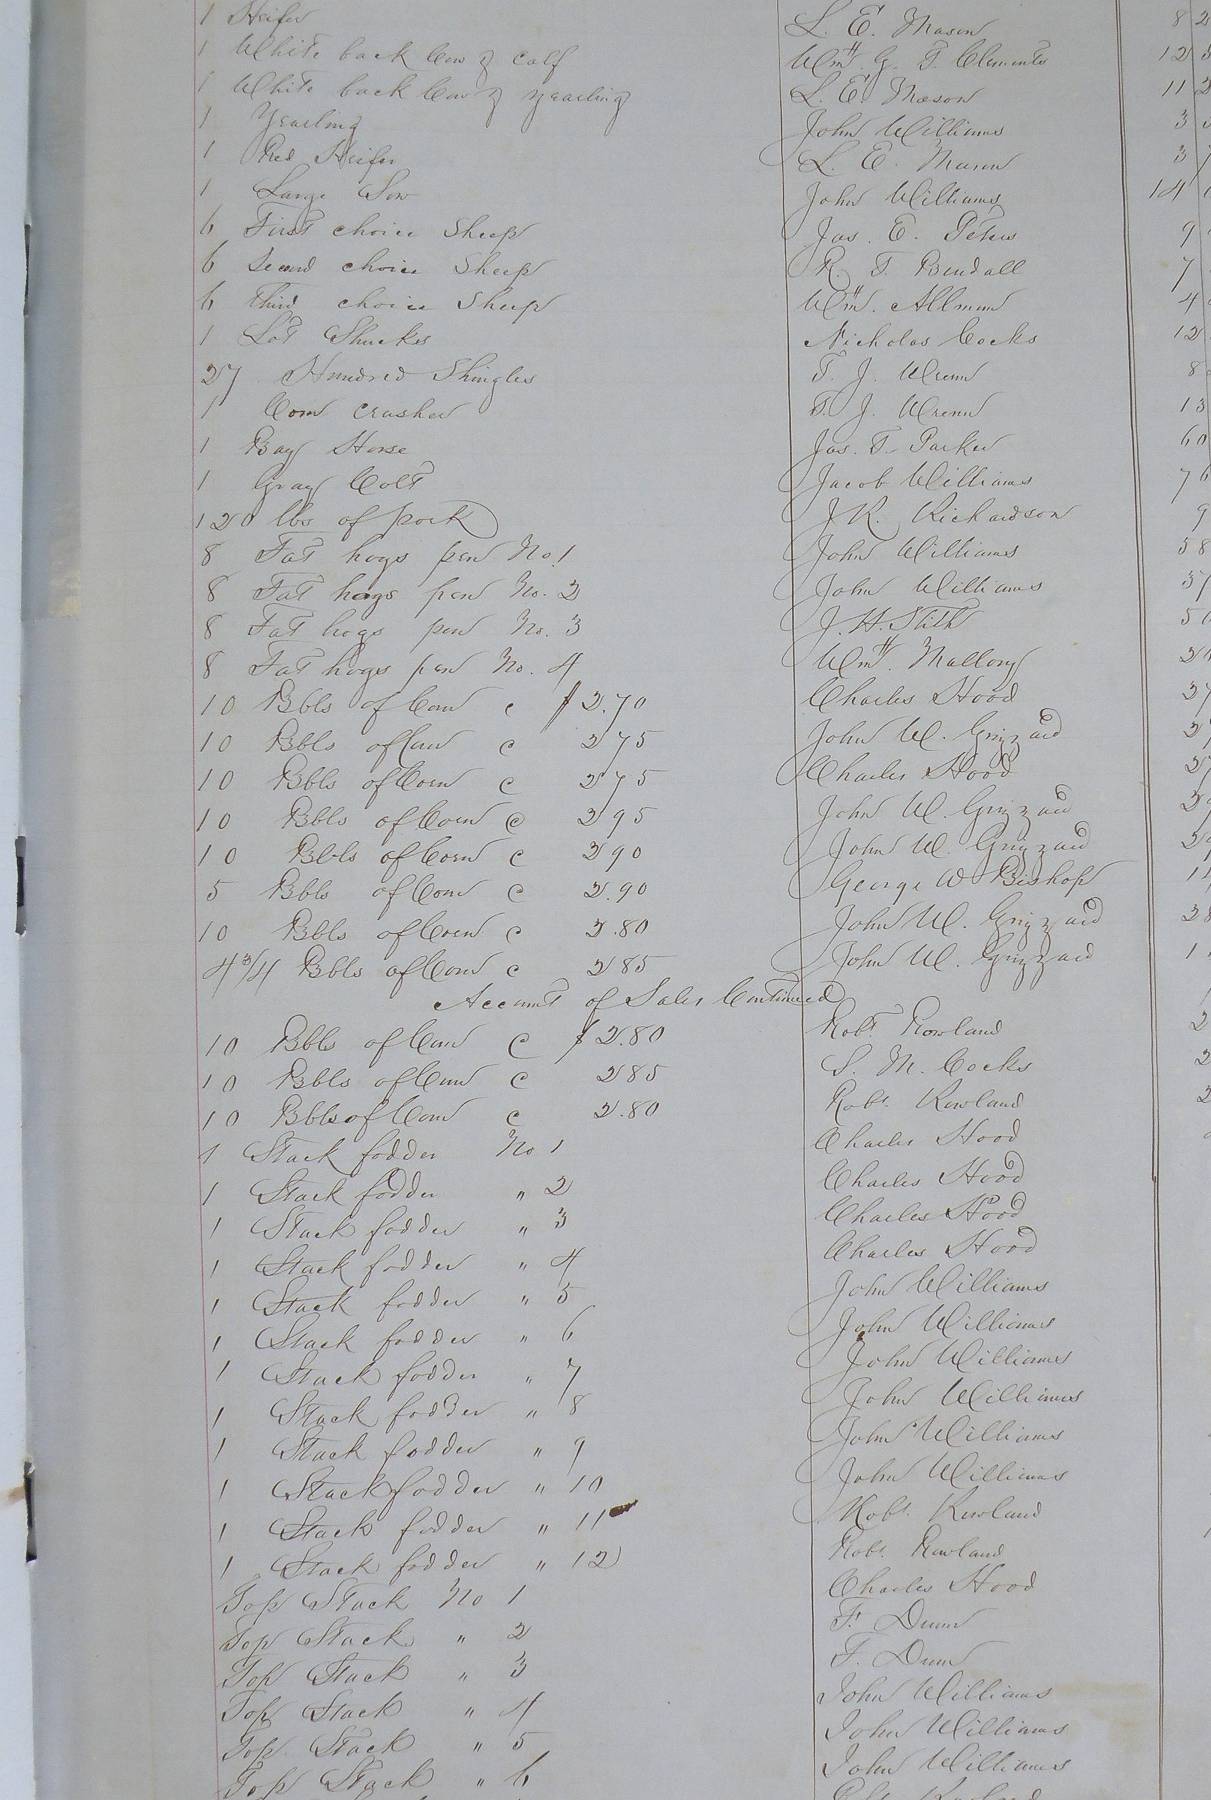 1 Heifer L. E. Mason 8 2
1 White back Cow & calf Wm. G. T. Clements 12
1 White back Cow & yearling L. E. Mason 11
1 Yearling John Williams 3
1 Red Heifer L. E. Mason 3
1 Large Sow John Williams 14
6 First choice Sheep Jas. E. Peters 9
6 Second choice Sheep R. T. Bendall 7
6 Third choice Sheep Wm. Allmon 4
1 Lot Shucks Nicholas Cocks 12
27 Hundred Shingles T. J. Wrenn 8
1 Corn Crusher T. J. Wrenn 13
1 Bay Horse Jas. T. Parker 60
1 Gray Colt Jacob Williams 76
120 lbs of pork J. R. Richardson 9
8 Fat hogs pen No. 1 John Williams 58
8 Fat hogs pen No. 2 John Williams 37
8 Fat hogs pen No. 3 J. H. Stith 50
8 Fat hogs pen No. 4 Wm. Mallory
10 Bbls of Corn c $2.70 Charles Hood 27
10 Bbls of Corn c 275 John W. Grizzard 27
10 Bbls of Corn c 275 Charles Hood 27
10 Bbls of Corn c 295 John W. Grizzard 29
10 Bbls of Corn c 290 John W. Grizzard 29
5 Bbls of Corn c 2.90 George W Bishop 14
10 Bbls of Corn c 2.80 John W. Grizzard 28
4 3/4 Bbls of Corn c 285 John W. Grizzard 1
Account of Sales Continued
10 Bbls of Corn c $2.80 Robt. Rowland 2
10 Bbls of Corn c 285 S. M. Cocks 2
10 Bbls of Corn c 2.80 Robt. Rowland 2
1 Stack fodder No 1 Charles Hood
1 Stack fodder " 2 Charles Hood
1 Stack fodder " 3 Charles Hood
1 Stack fodder " 4 Charles Hood
1 Stack fodder " 5 John Williams
1 Stack fodder " 6 John Williams
1 Stack fodder " 7 John Williams
1 Stack fodder " 8 John Williams
1 Stack fodder " 9 John Williams
1 Stack fodder " 10 John Williams
1 Stack fodder " 11 Robt. Rowland
1 Stack fodder " 12 Robt. Rowland
Top Stack No 1 Charles Hood
Top Stack " 2 F. Dunn
Top Stack " 3 F. Dunn
Top Stack " 4 John Williams
Top Stack " 5 John Williams
Top Stack " 6 John Williams